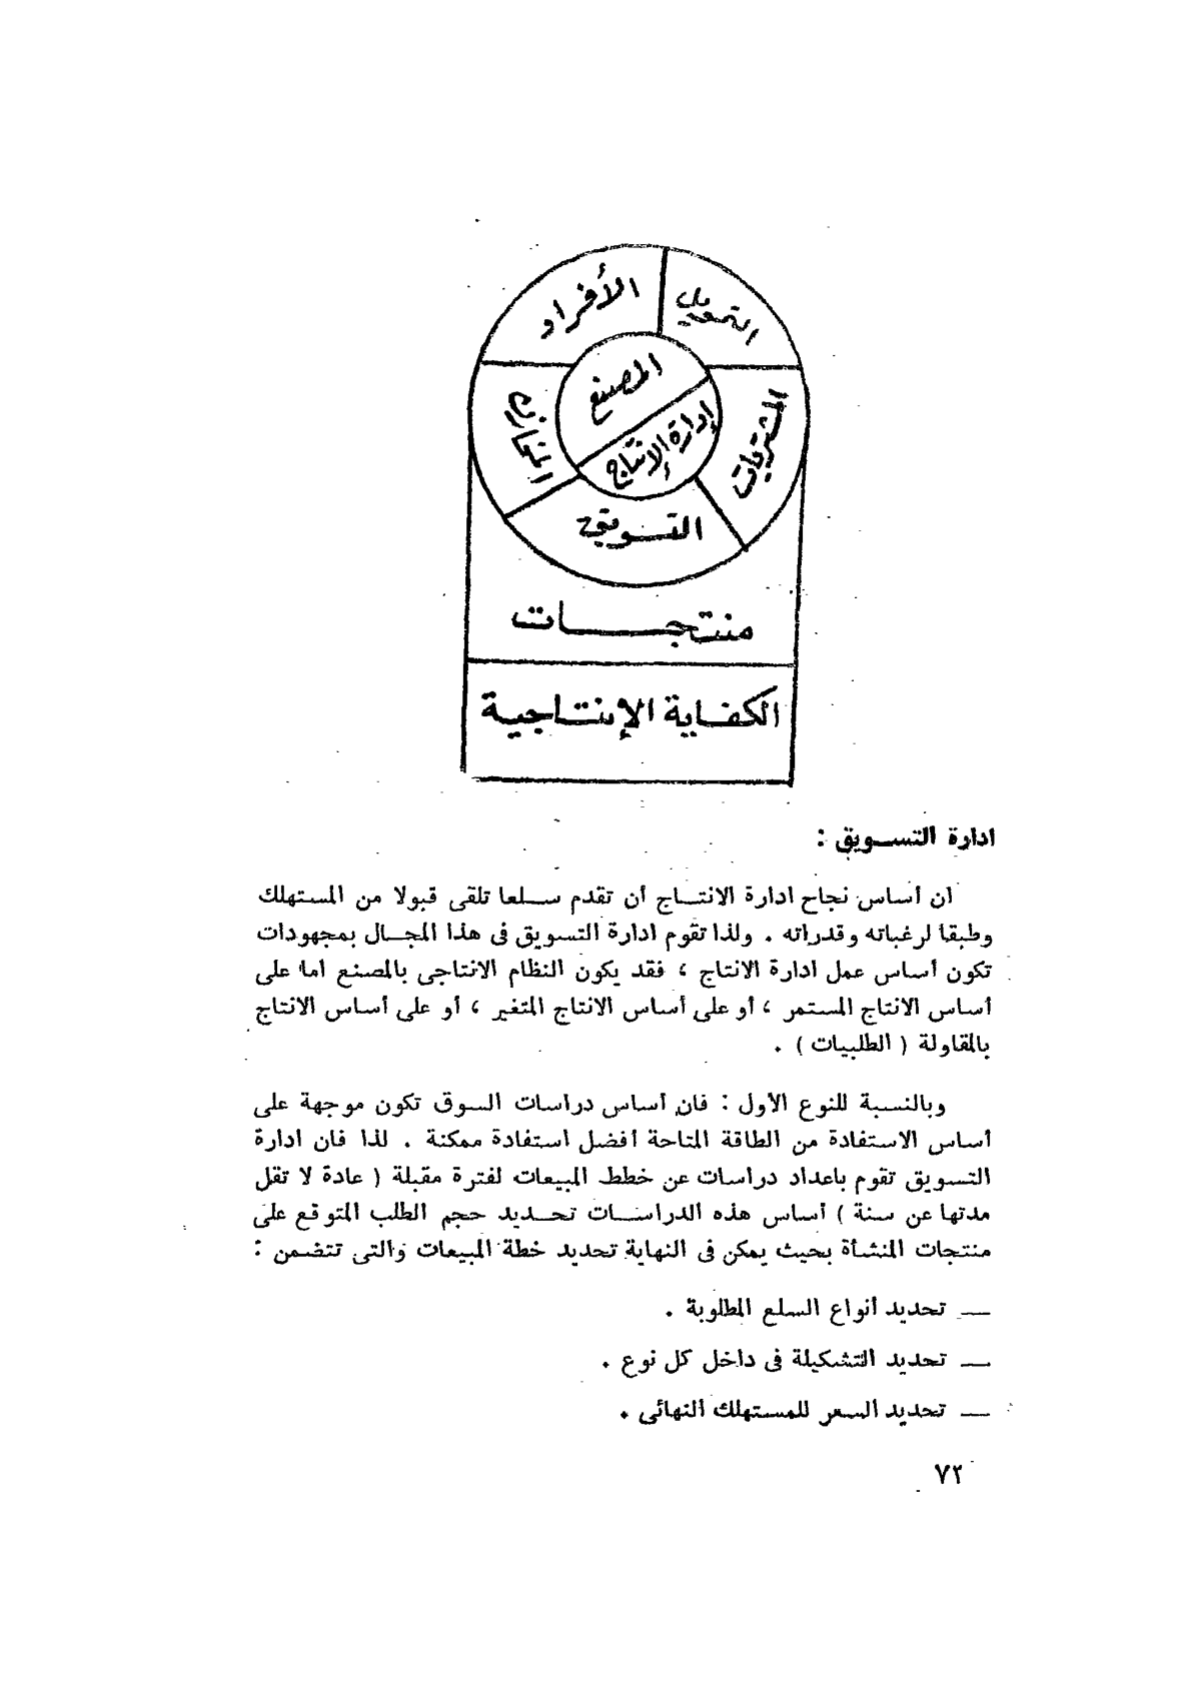 الأفراد
التمويل
المصنع
إدارة الإنتاج
المخازن
المشتريات
التسويق
منتجات
الكفاية الإنتاجية
ادارة التسويق :
ان أساس نجاح ادارة الانتاج أن تقدم سلعا تلقى قبولا من المستهلك
وطبقا لرغباته وقدراته . ولذا تقوم ادارة التسويق فى هذا المجال بمجهودات
تكون أساس عمل ادارة الانتاج ، فقد يكون النظام الانتاجى بالمصنع اما على
أساس الانتاج المستمر ، أو على أساس الانتاج المتغير ، أو على أساس الانتاج
بالمقاولة ( الطلبيات ) .
وبالنسبة للنوع الأول : فان أساس دراسات السوق تكون موجهة على
أساس الاستفادة من الطاقة المتاحة أفضل استفادة ممكنة . لذا فان ادارة
التسويق تقوم باعداد دراسات عن خطط المبيعات لفترة مقبلة ( عادة لا تقل
مدتها عن سنة ) أساس هذه الدراسات تحديد حجم الطلب المتوقع على
منتجات المنشأة بحيث يمكن فى النهاية تحديد خطة المبيعات والتى تتضمن :
— تحديد أنواع السلع المطلوبة .
— تحديد التشكيلة فى داخل كل نوع .
— تحديد السعر للمستهلك النهائى .
٧٢